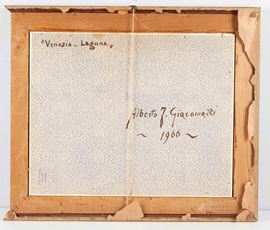 "Venezia - Laguna"
Alberto J. Giacomazzi
~ 1966 ~